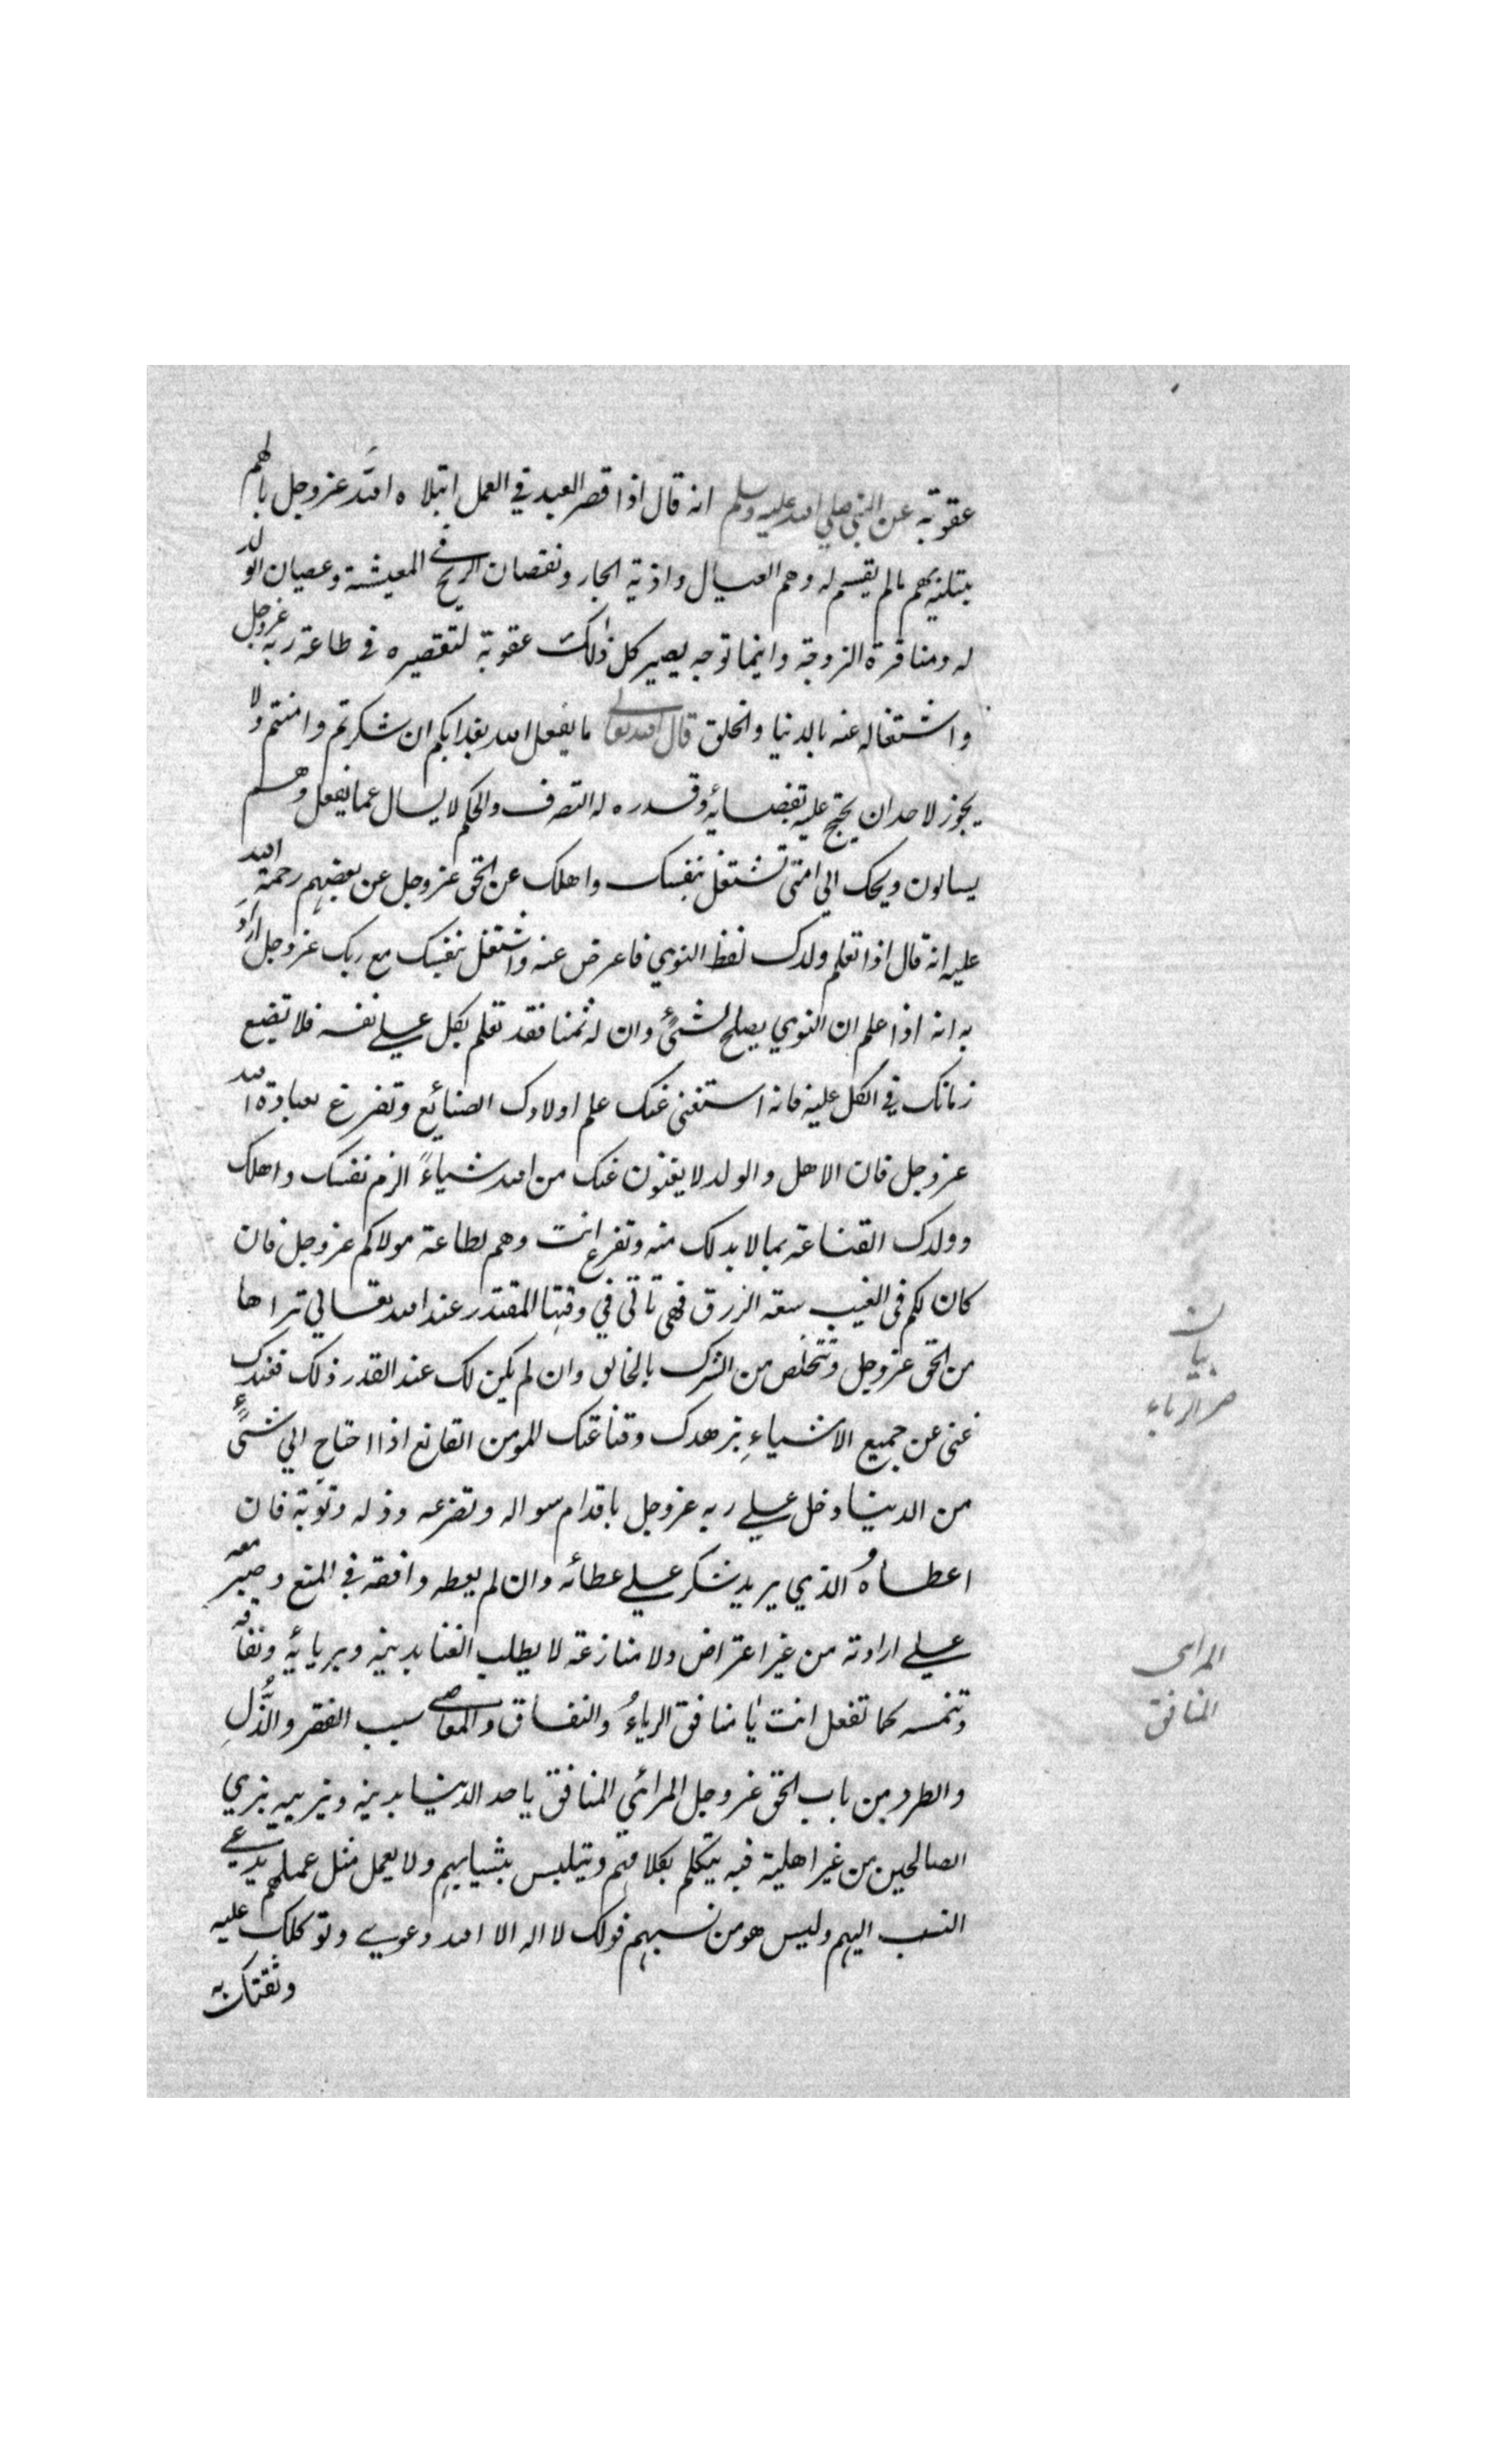 عقوبة عن النبي صلي الله عليه وسلم انه قال اذا قصر العبد في العمل ابتلاه الله عز وجل بالهم
يبتليه بهم مالم يقسم له وهم العيال واذية الجار ونقصان الربح في المعيشة وعصيان الولد
له ومنافرة الزوجة واينما توجه يصير كل ذلك عقوبة لتقصيره في طاعة ربه عز وجل
واشتغاله عنه بالدنيا والخلق قال الله تعالى ما يفعل الله بعذابكم ان شكرتم وامنتم ولا
يجوز لاحد ان يحتج عليه بقضائه وقدره له التصرف والحكم لا يسال عما يفعل وهم
يسالون ويحك الي متي تشتغل بنفسك واهلك عن الحق عز وجل عن بعضهم رحمة الله
عليه انه قال اذا تعلم ولدك لفظ النوي فاعرض عنه واشتغل بنفسك مع ربك عز وجل اراد
به انه اذا علم ان النوي يصلح لشيء وان له ثمنا فقد تعلم بكل علي نفسه فلا تضيع
زمانك في الكل عليه فانه استغنى عنك علم اولادك الصنائع وتفرغ لعبادة الله
عز وجل فان الاهل والولد لا يغنون عنك من الله شياءً الزم نفسك واهلك
وولدك القناعة بما لابد لك منه وتفرغ انت وهم لطاعة مولاكم عز وجل فان
كان لكم في الغيب سعة الرزق فهي تاتي في وقتها المقتدر عند الله تعالي تراها
من الحق عز وجل وتتخلص من الشرك بالخلق وان لم يكن لك عند القدر ذلك فعندك
غنى عن جميع الاشياءِ بزهدك وقناعتك المومن القانع اذا احتاج الي شيء
من الدنيا دخل علي ربه عز وجل باقدام سواله وتضرعه وذله وتوبة فان
اعطاه الذي يريد شكر علي عطائه وان لم يعطه وافقه في المنع وصبر معه
علي ارادته من غير اعتراض ولا منازعة لا يطلب الغنا بدينه وبريائه ونفاقه
وتنمسه كما تفعل انت يا منافق الرياءُ والنفاق والمعاصي سبب الفقر والذُّلِ
والطرد من باب الحق عز وجل المرائي المنافق ياخد الدنيا بدينه ويزييه بزي
الصالحين من غير اهلية فيه يتكلم بكلامهم ويتلبس بثيابهم ولا يعمل مثل عملهم يدعي
النسب اليهم وليس هو من نسبهم قولك لا اله الا الله دعوي وتوكلك عليه
وثقتك به
بيان
ضر الرياء
المرائى
المنافق